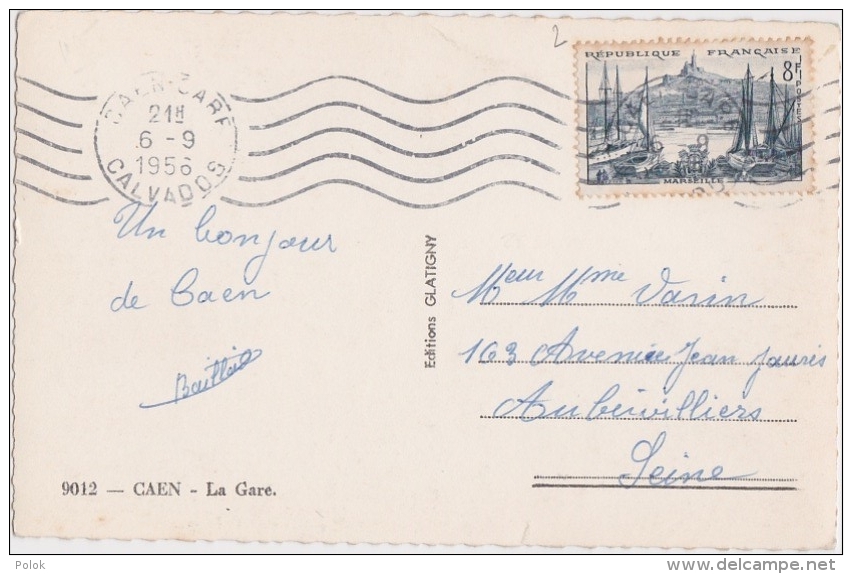 2
RÉPUBLIQUE FRANÇAISE
8F
POSTES
MARSEILLE
CAEN-GARE
21H
6-9
1956
CALVADOS
Un bonjour
de Caen
Editions GLATIGNY
Meur Mme Varin
163 Avenue Jean Jaurès
Aubervilliers
Seine
9012 — CAEN - La Gare.
Polok
delcampe.net